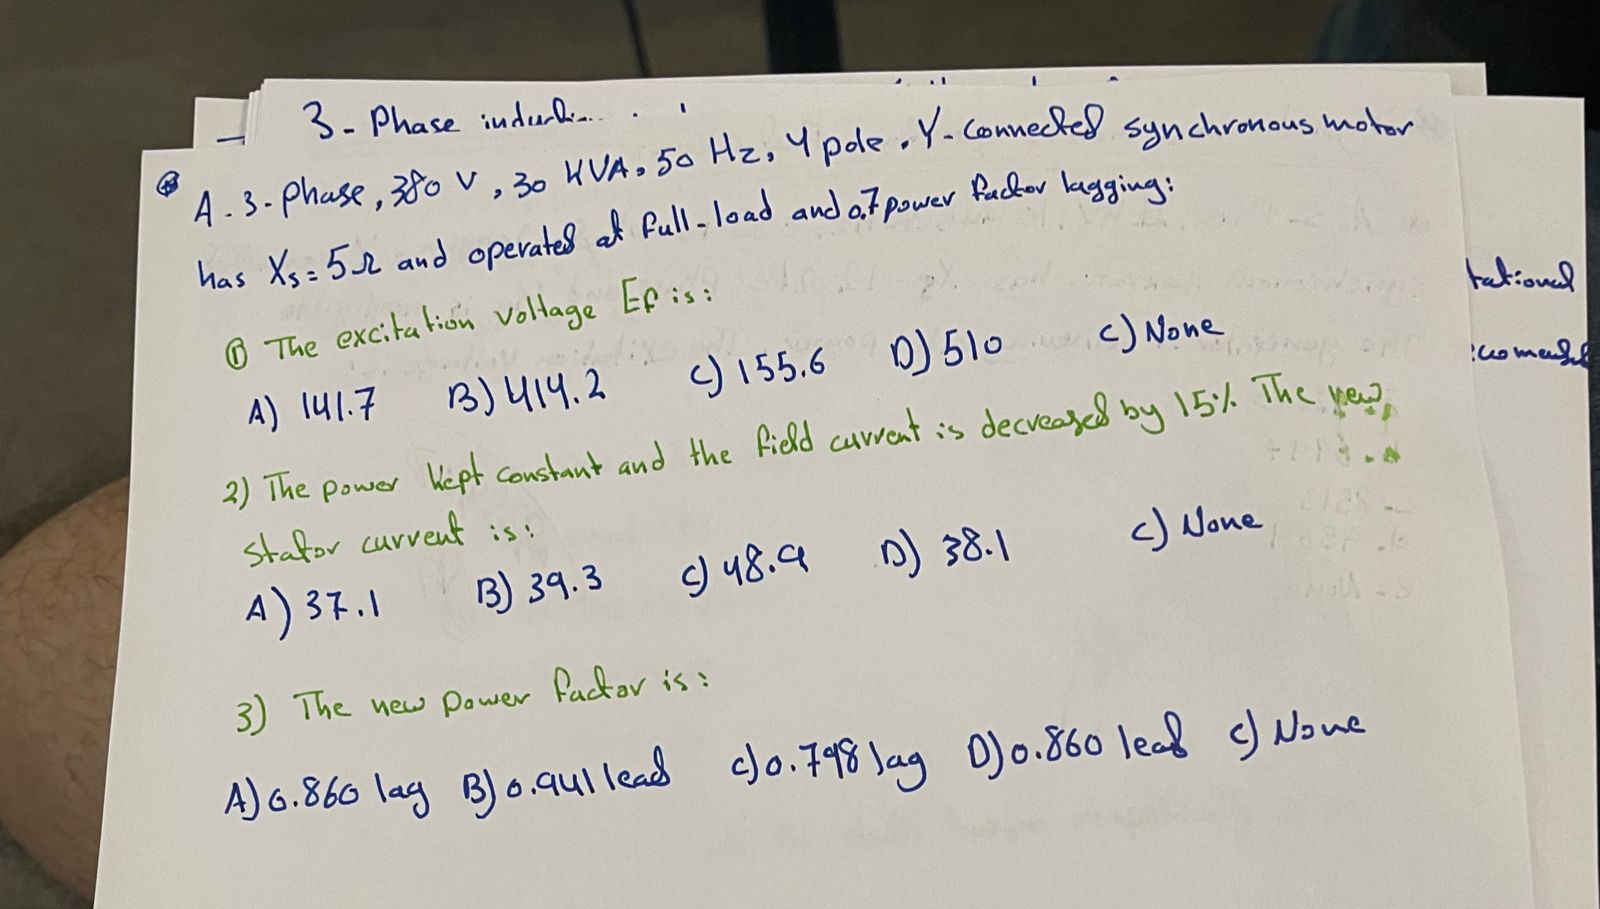 3-Phase
A. 3-phase, 380 V, 30 KVA, 50 Hz, 4 pole, Y-Connected synchronous motor
has Xs = 5Ω and operated at full-load and 0.7 power factor lagging:
① The excitation voltage Ef is:
A) 141.7 B) 414.2 C) 155.6 D) 510 C) None
2) The power Kept constant and the field current is decreased by 15% The new
stator current is:
A) 37.1 B) 39.3 C) 48.9 D) 38.1 C) None
3) The new power factor is:
A) 0.860 lag B) 0.941 lead C) 0.798 lag D) 0.860 lead C) None
tational